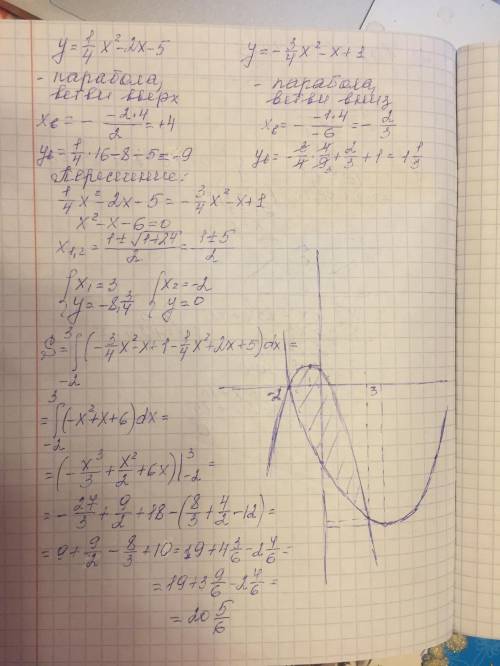 y = 1/4 x² - 2x - 5
- парабола,
ветви вверх
x_в = - (-2·4)/2 = +4
y_в = 1/4 · 16 - 8 - 5 = -9
y = - 3/4 x² - x + 1
- парабола,
ветви вниз
x_в = - (-1·4)/(-6) = - 2/3
y_в = - 3/4 · 4/9 + 2/3 + 1 = 1 1/3
Пересечение:
1/4 x² - 2x - 5 = - 3/4 x² - x + 1
x² - x - 6 = 0
x₁,₂ = (1 ± √(1+24))/2 = (1 ± 5)/2
{ x₁ = 3 { x₂ = -2
y = -8 3/4 y = 0
S = ∫₋₂³ (- 3/4 x² - x + 1 - 1/4 x² + 2x + 5) dx =
= ∫₋₂³ (-x² + x + 6) dx =
= (- x³/3 + x²/2 + 6x) |₋₂³ =
= - 27/3 + 9/2 + 18 - (8/3 + 4/2 - 12) =
= 9 + 9/2 - 8/3 + 10 = 19 + 4 3/6 - 2 4/6 =
= 19 + 3 9/6 - 2 4/6 =
= 20 5/6
-2 3